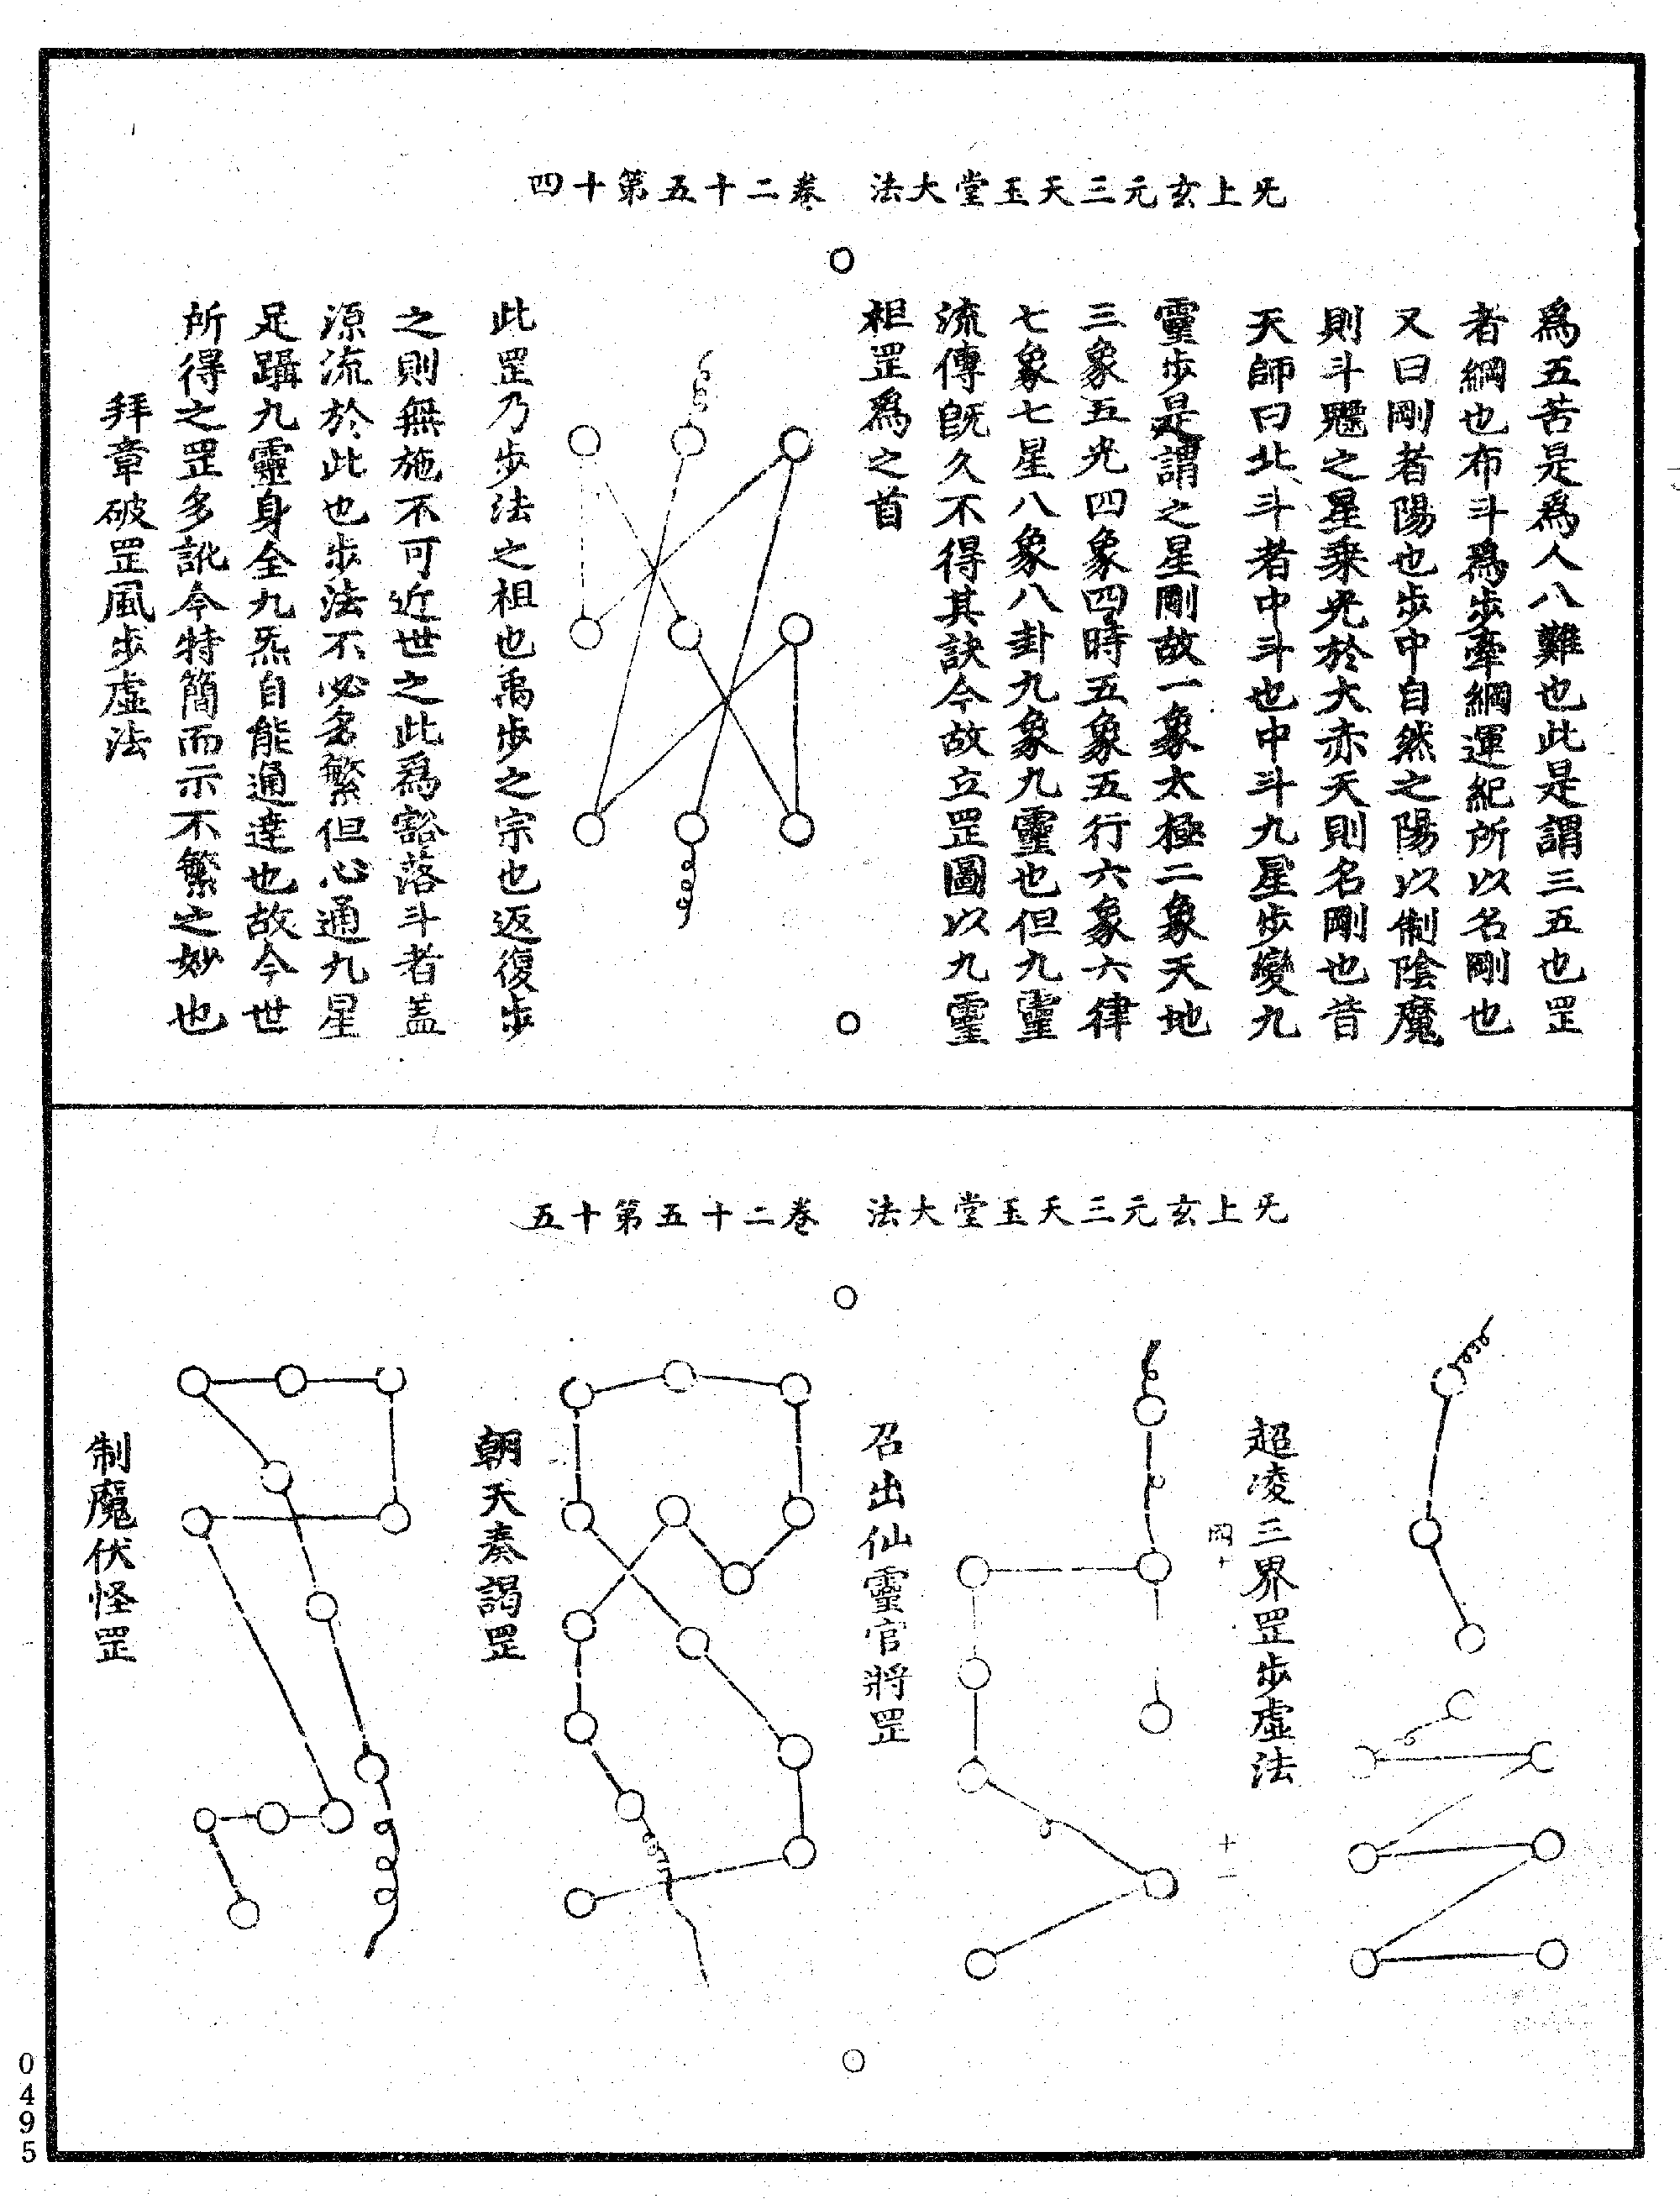 无上玄元三天玉堂大法　卷二十五第十四
爲五苦是爲人八難也此是謂三五也罡
者綱也布斗爲步牽綱運紀所以名剛也
又曰剛者陽也步中自然之陽以制陰魔
則斗魁之星乗光於大赤天則名剛也昔
天師曰北斗者中斗也中斗九星步變九
靈步是謂之星剛故一象太極二象天地
三象五光四象四時五象五行六象六律
七象七星八象八卦九象九靈也但九靈
流傳旣久不得其訣今故立罡圖以九靈
祖罡爲之首
此罡乃步法之祖也禹步之宗也返復步
之則無施不可近世之此爲豁落斗者盖
源流於此也步法不必多繁但心通九星
足躡九靈身全九炁自能通達也故今世
所得之罡多訛今特簡而示不繁之妙也
拜章破罡風步虛法
无上玄元三天玉堂大法　卷二十五第十五
超凌三界罡步虛法
十一
召出仙靈官將罡
朝天奏謁罡
制魔伏怪罡
0495